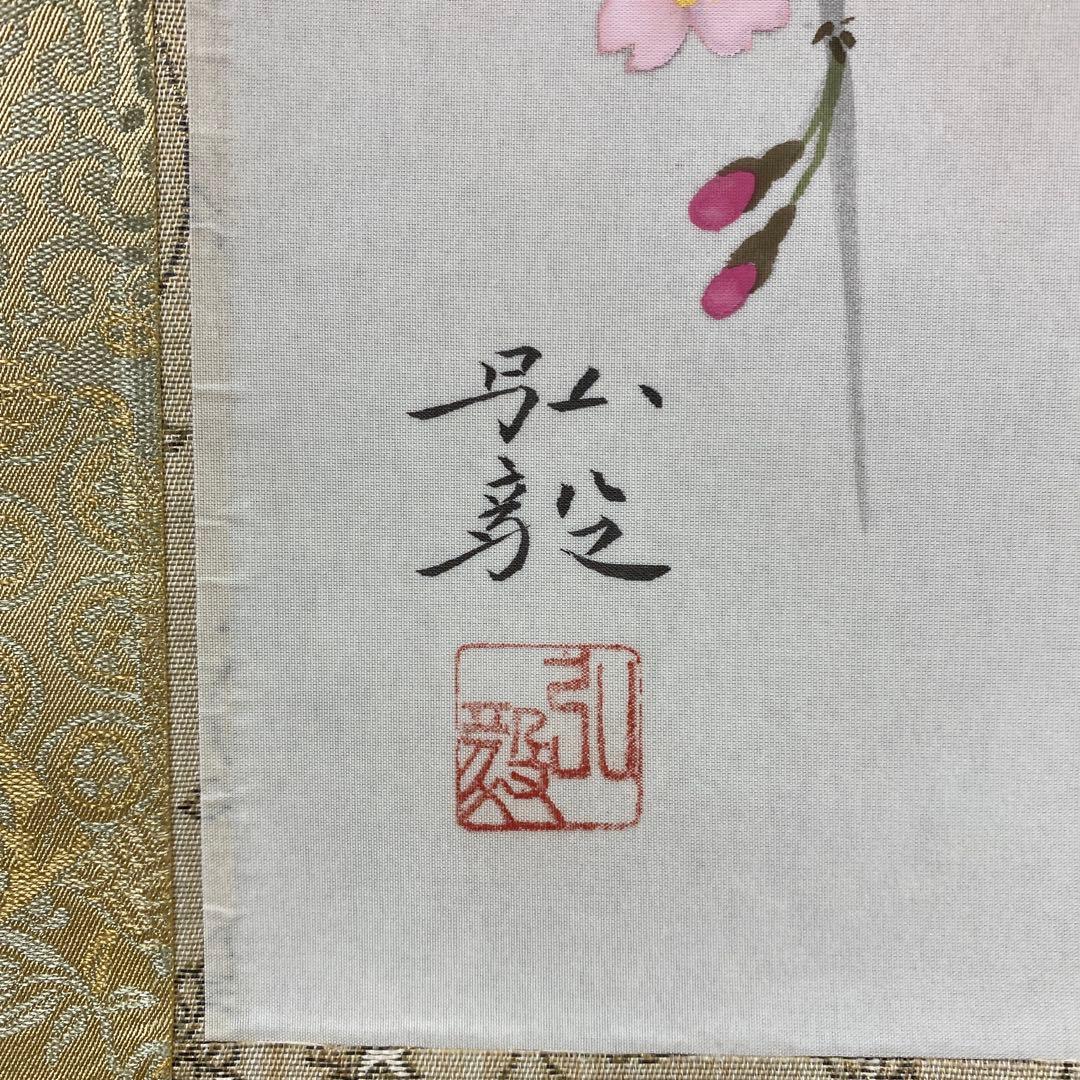 弘毅
弘毅